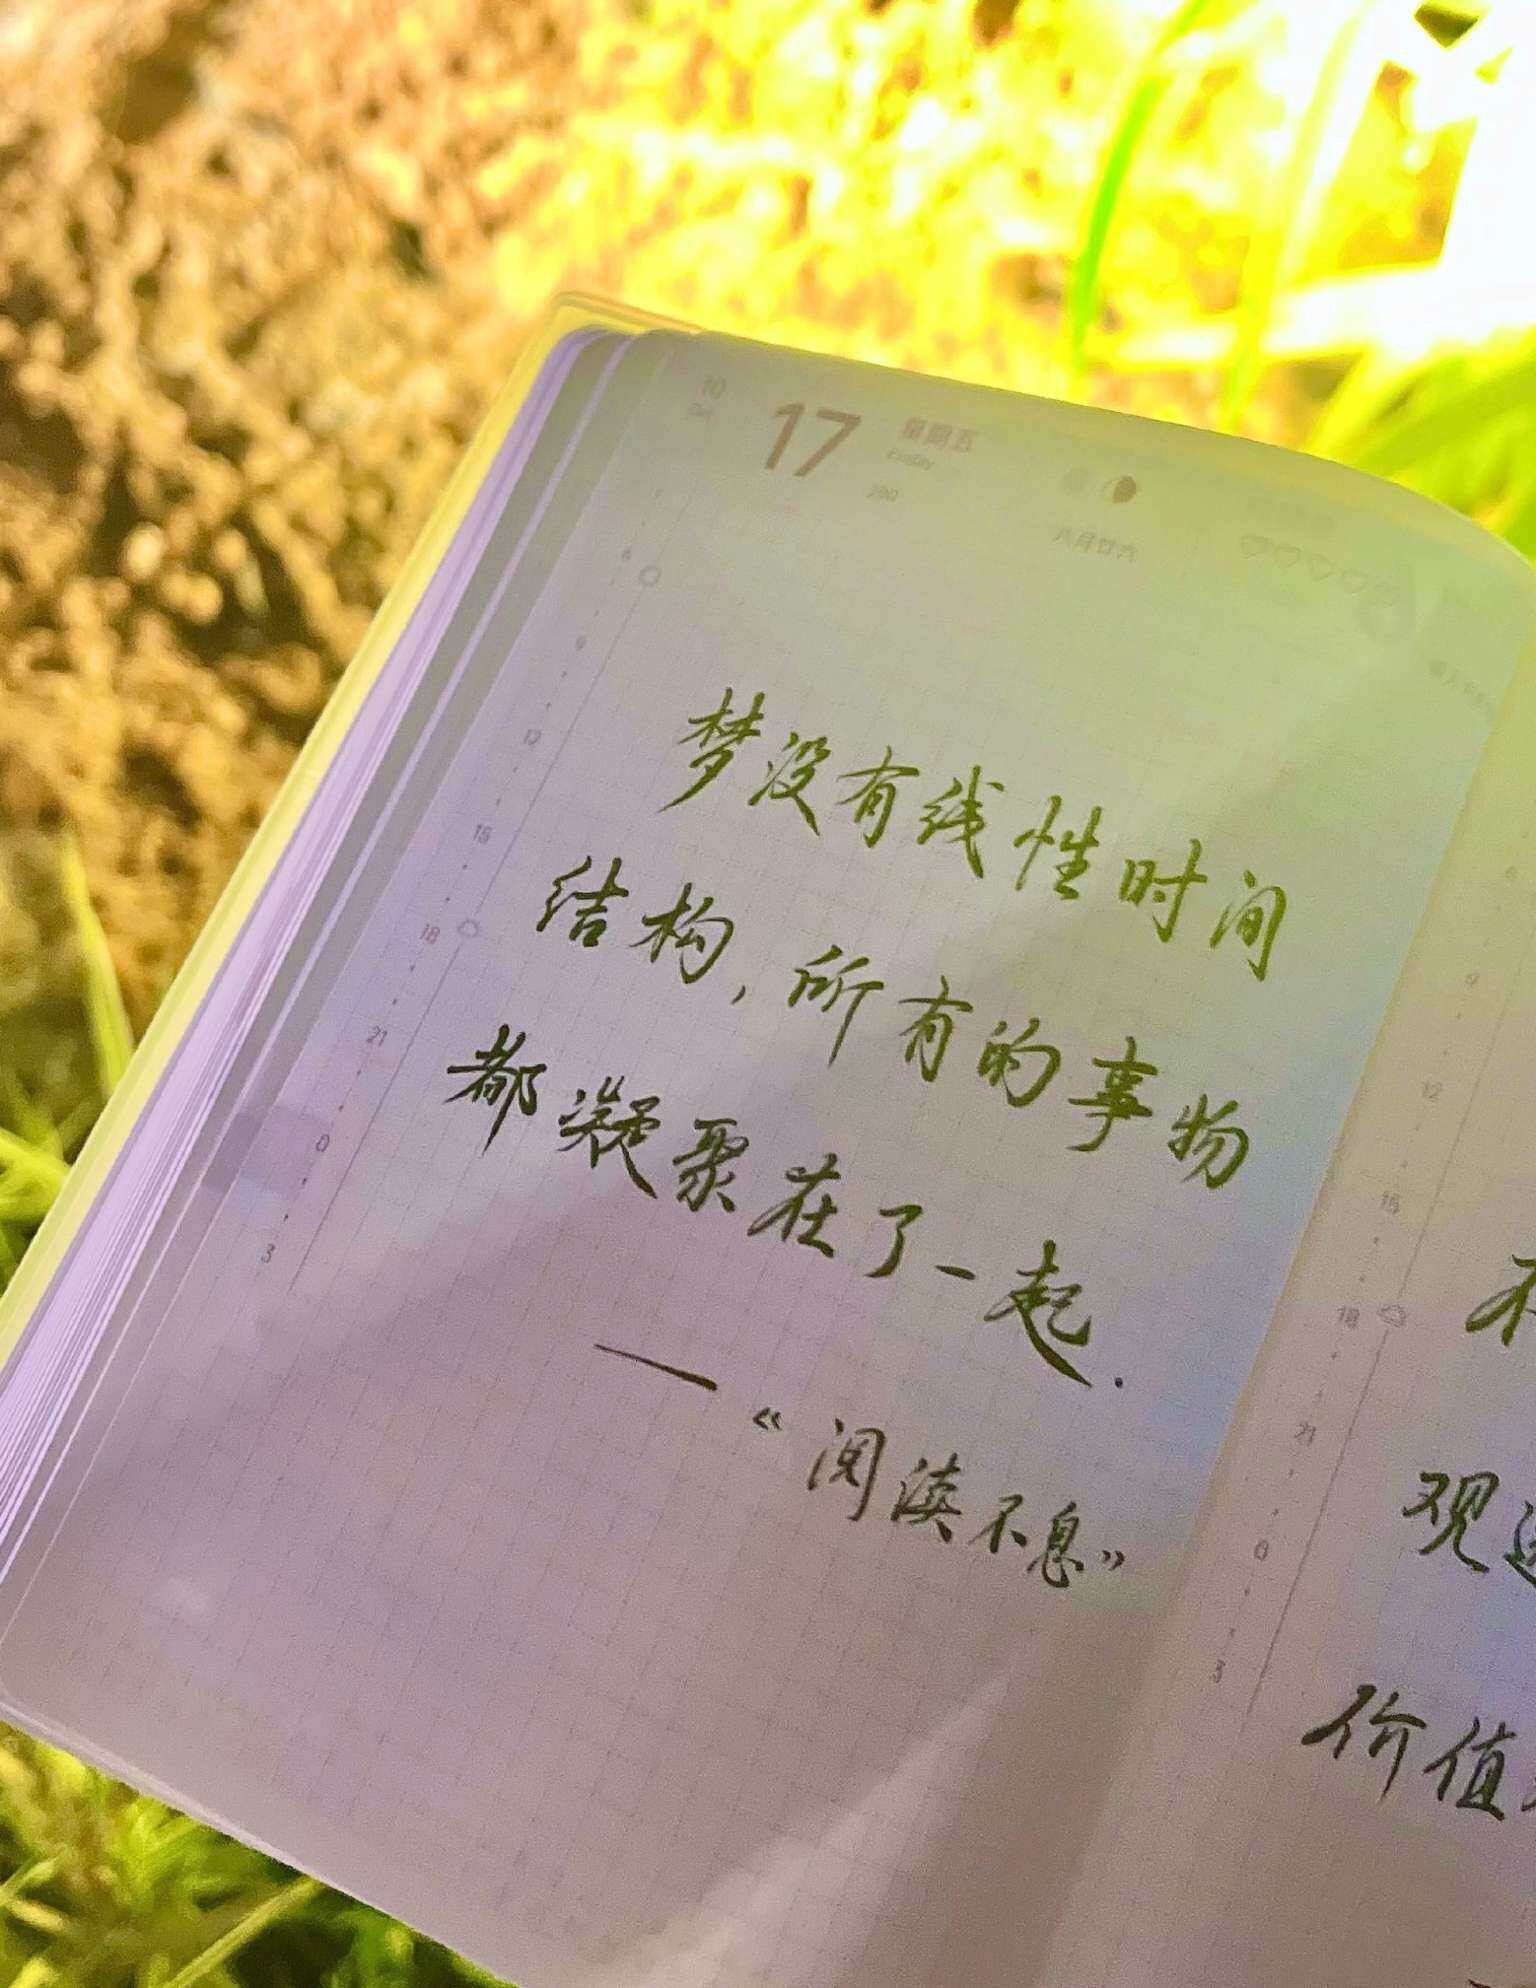 10
Oct
17
星期五
Friday
290
八月廿六
6
9
12
15
18
21
0
3
梦没有线性时间
结构,所有的事物
都凝聚在了一起.
——《阅读不息》
6
9
12
15
18
21
0
3
观
价值